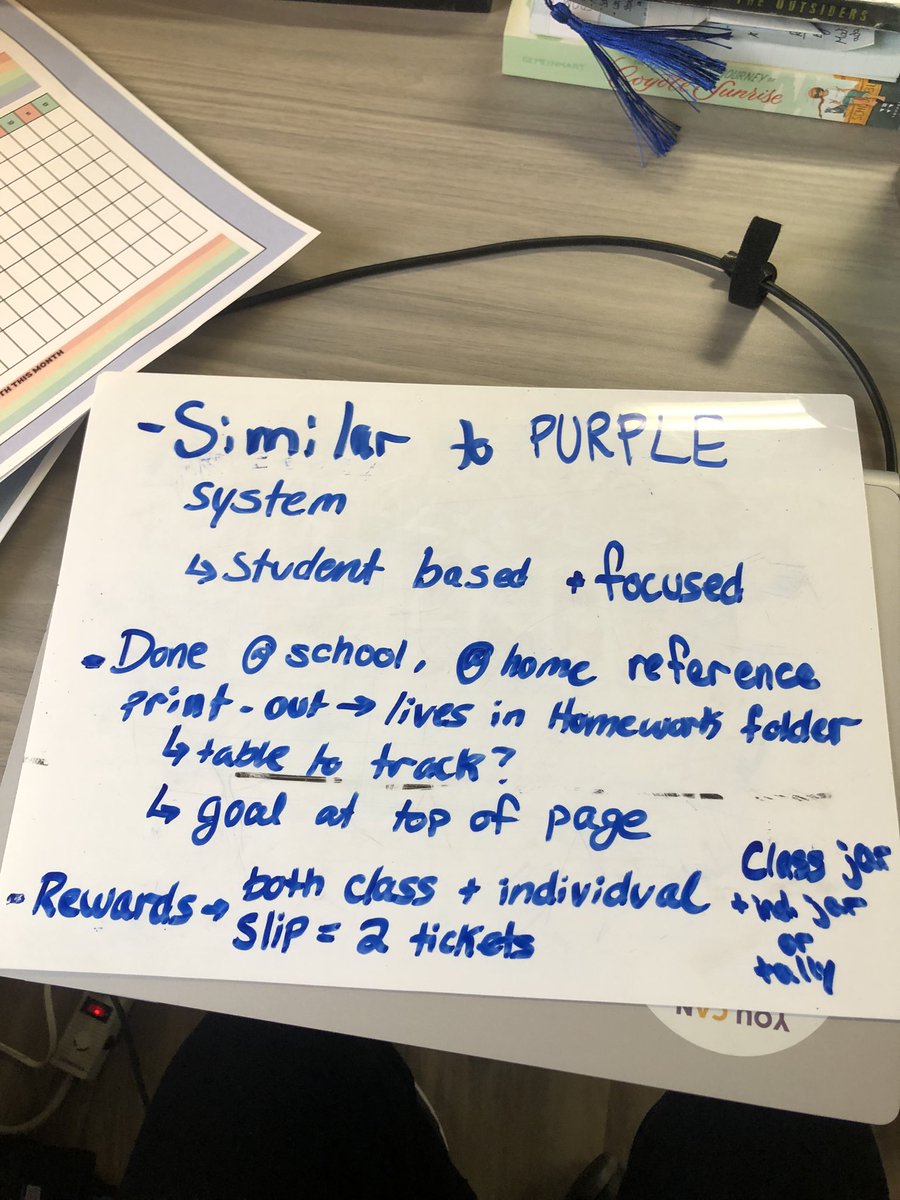 THE OUTSIDERS
GEMEINHART
JOURNEY
Coyote Sunrise
TH THIS MONTH
- Similar to PURPLE
system
↳ student based + focused
- Done @ school, @ home reference
print-out → lives in Homework folder
↳ table to track?
↳ goal at top of page
- Rewards → both class + individual
slip = 2 tickets
Class jar
+ ind. jar
or
tally
YOU CAN